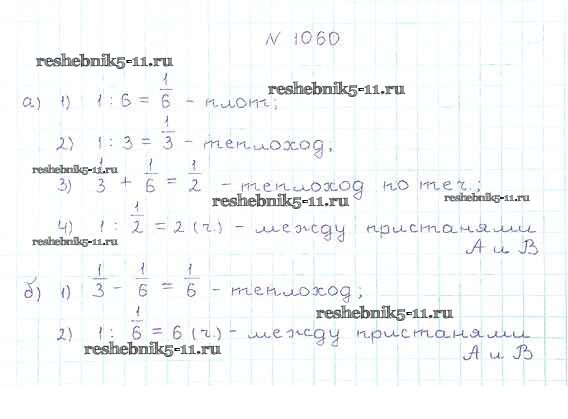 N 1060
reshebnik5-11.ru
reshebnik5-11.ru
а) 1) 1 : 6 = 1/6 - плот;
2) 1 : 3 = 1/3 - теплоход,
reshebnik5-11.ru
3) 1/3 + 1/6 = 1/2 - теплоход по теч.;
reshebnik5-11.ru
reshebnik5-11.ru
4) 1 : 1/2 = 2 (ч.) - между пристанями
reshebnik5-11.ru
А и В
б) 1) 1/3 - 1/6 = 1/6 - теплоход;
reshebnik5-11.ru
2) 1 : 1/6 = 6 (ч.) - между пристанями
reshebnik5-11.ru
А и В